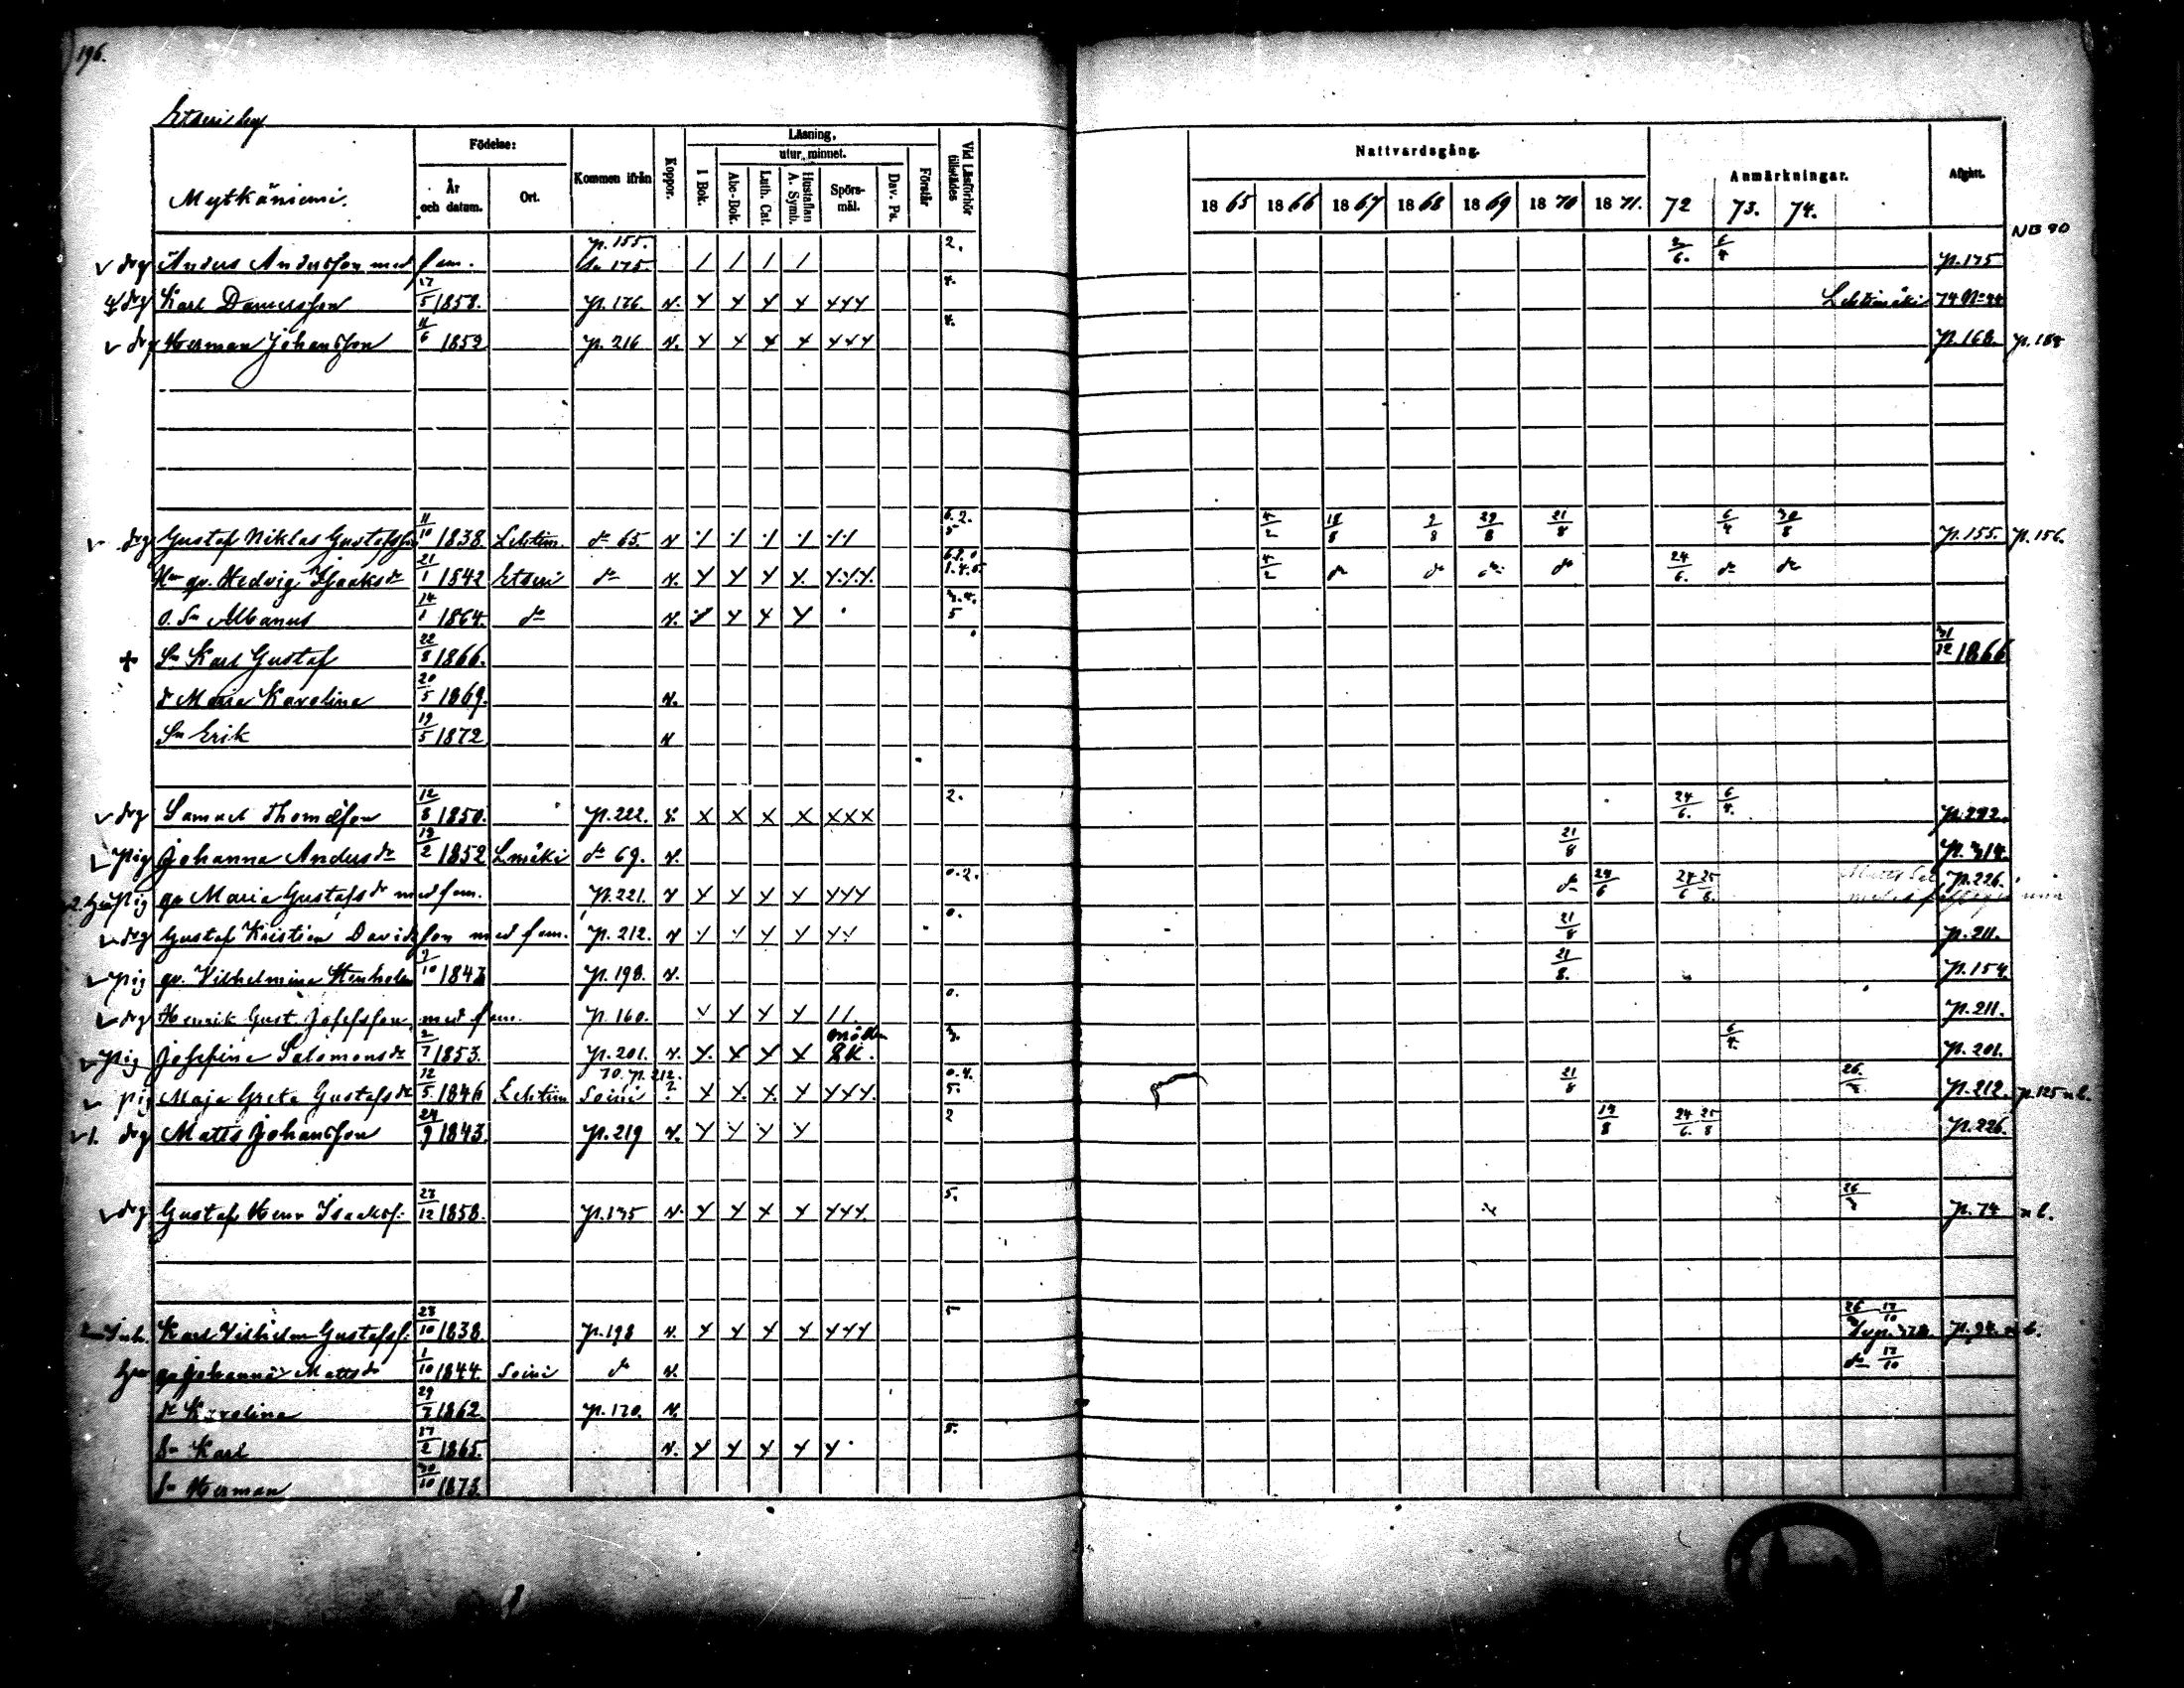 196.
Etseri by
Mytkäniemi.
Födelse:
År och datum.
Ort.
Kommen ifrån
Koppor.
Läsning,
utur minnet.
I Bok.
Abc-Bok.
Luth. Cat.
Hustaflan A. Symb.
Spörs-mål.
Dav. Ps.
Förstår
Vid Läsförhör tillstädes
Nattvardsgång.
Anmärkningar.
Afgått.
1865 1866 1867 1868 1869 1870 1871. 72 73. 74.
NB 90
drg Anders Andersson med fam. p. 155. 175. / / / / 2. 6/4 p. 175
drg Karl Danielsson 17/5 1858. p. 176. v. x x x x xxx 4. Lehtimäki 74 No 44
drg Herman Johansson 11/6 1859 p. 216 v. x x x x xxx 4. p. 168. p. 188
drg Gustaf Niklas Gustafsson 11/10 1838. Lehtim. do 65. v 6.2. 5 4/2 18/8 2/8 29/8 21/8 6/4 30/8 p. 155. p. 156.
Hu gv. Hedvig Isaaksdr 21/1 1842 Etseri do v. 4/2 do do do do 24/6. do do
o. Sn Albanus 14/1 1864. do v. 5
+ Sn Karl Gustaf 22/8 1866. 31/12 1866
dr Maria Karolina 20/5 1869. v.
Sn Erik 19/5 1872 v
drg Samuel Thomasson 12/8 1850. p. 222. v. x x x x xxx 2. 24/6. 6/4. p. 292.
pig Johanna Andersdr 19/2 1852 Lmäki do 69. v. 21/8 p. 314.
2. pig gv Maria Gustafsdr med fam. p. 221. v x x x x xxx 0.2. do 24/6 24/6 25/8. p. 226.
drg Gustaf Kristian Davidsson med fam. p. 212. v 0. 21/8 p. 211.
pig gv. Vilhelmina 1843 p. 198. v. 21/8. p. 154.
drg Henrik Gust. Josefsson med fam. p. 160. 0. p. 211.
pig Josefina Salomonsdr 2/7 1853. p. 201. v. x x x x 3. 6/4. p. 201.
pig Maja Greta Gustafsdr 12/5 1846 Lehtim Soini 70. p. 212. ? x x x x xxx. 0.4. 5. 21/8 p. 212. p. 125 n b.
1. drg Matts Johansson 24/9 1843. p. 219 v. x x x x 2 19/8 24/6. 25/8 p. 226.
drg Gustaf Henr Isaaksf. 23/12 1858. p. 175 v. x x x x xxx. 5. p. 74 n b.
Inh. Karl Vilhelm Gustafsf. 23/10 1838. p. 198 v. x x x x xxx 5 17/10 p. 94. n b.
Hu gv Johanna Mattsdr 1/10 1844. Soini do v. do 17/10
dr Karolina 29/7 1862. p. 170. v.
Sn Karl 17/2 1865. v. x x x x x 5.
Sn Herman 30/10 1873.